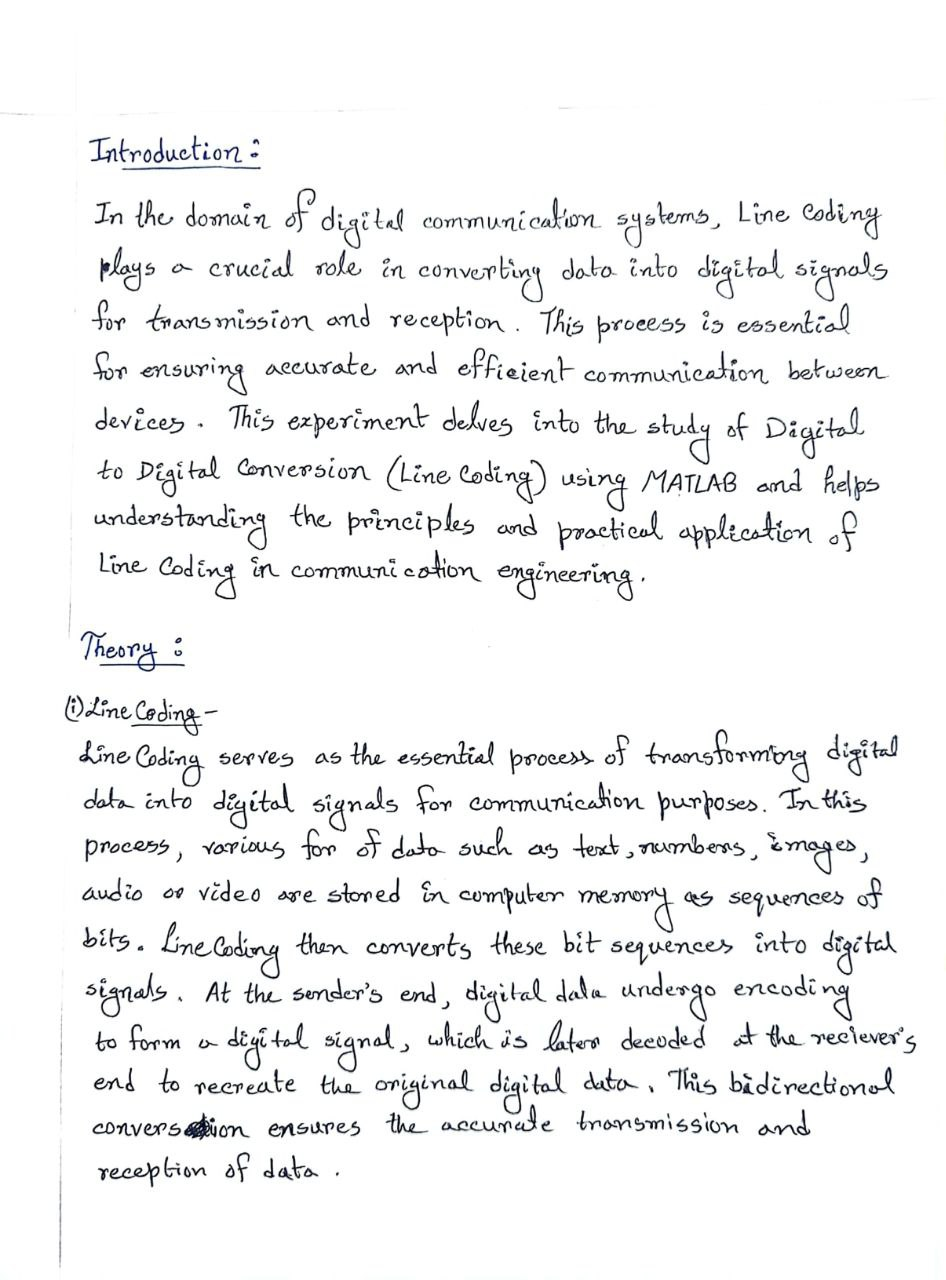 Introduction :
In the domain of digital communication systems, Line Coding
plays a crucial role in converting data into digital signals
for transmission and reception. This process is essential
for ensuring accurate and efficient communication between
devices. This experiment delves into the study of Digital
to Digital Conversion (Line Coding) using MATLAB and helps
understanding the principles and practical application of
Line Coding in communication engineering.
Theory :
(i) Line Coding -
Line Coding serves as the essential process of transforming digital
data into digital signals for communication purposes. In this
process, various for of data such as text, numbers, images,
audio or video are stored in computer memory as sequences of
bits. Line Coding then converts these bit sequences into digital
signals. At the sender's end, digital data undergo encoding
to form a digital signal, which is later decoded at the reciever's
end to recreate the original digital data. This bidirectional
conversation ensures the accurate transmission and
reception of data.